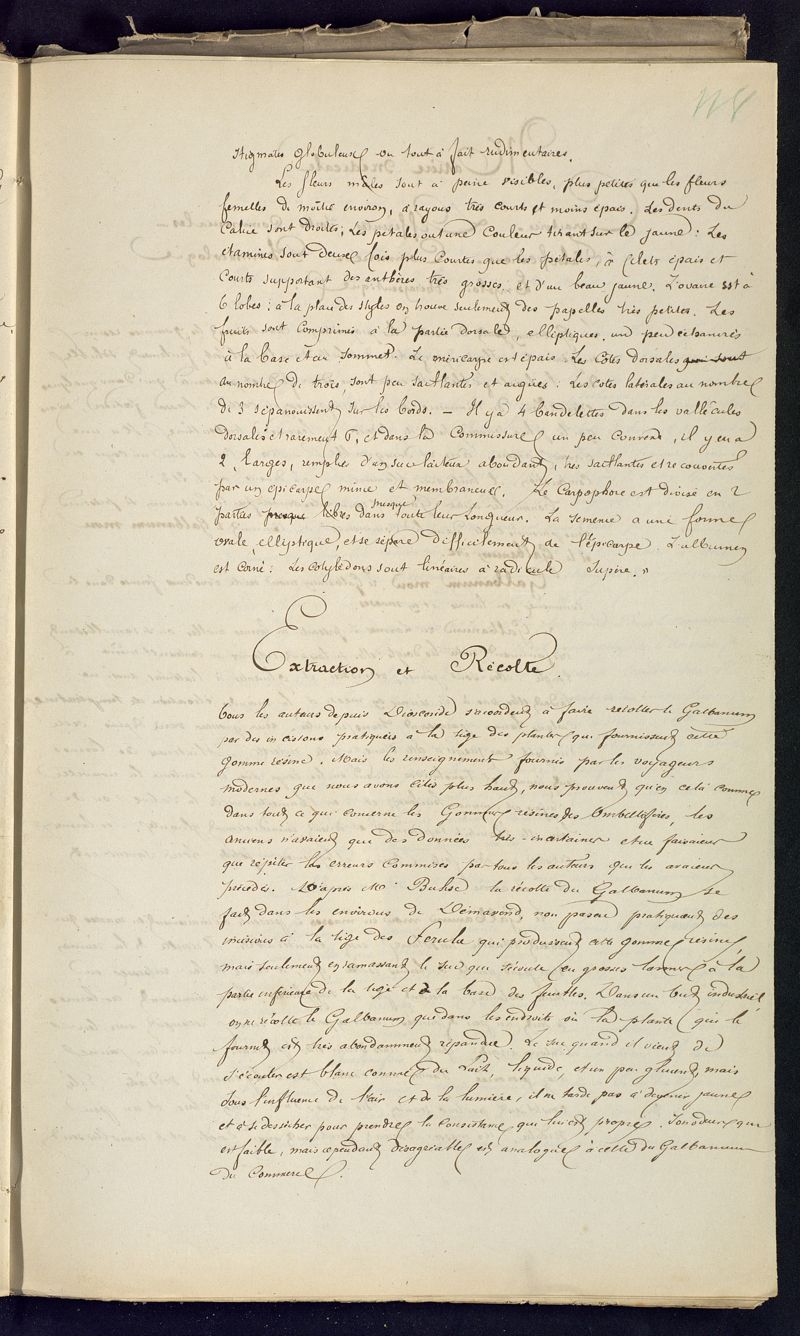 118
stigmates globuleux ou tout à fait rudimentaires.
Les fleurs mâles sont à peine visibles, plus petites que les fleurs
femelles de moitié environ, à rayons très courts et moins épais. Les dents du
Calice sont droites; Les pétales ont une Couleur tirant sur le jaune: Les
étamines sont deux fois plus Courtes que les pétales, à filets épais et
Courts supportant des anthères très grosses et d'un beau jaune. L'ovaire est à
6 lobes; à la place des styles on trouve seulement des papelles très petites. Les
fruits sont Comprimés à la partie dorsale, elliptiques, un peu échancrés
à la base et au Sommet. Le méricarpe est épais. Les Côtes dorsales qui sont
au nombre de trois, sont peu saillantes et aigües: Les cotes latérales au nombre
de 3 s'épanouissent sur les bords. — Il y a 4 bandelettes dans les vallécules
dorsales et rarement 6, et dans la Commissure un peu Convexe, il y en a
2 larges, remplies d'un suc laiteux abondant, très saillantes et recouvertes
par un épicarpe mince et membraneux. Le Carpophore est divisé en 2
parties presque libres dans presque toute leur Longueur. La semence a une forme
ovale, elliptique, et se sépare difficilement de l'épicarpe. L'albumen
est Corné: Les cotylédons sont linéaires à radicule Supère. »
Extraction et Récolte.
Tous les auteurs depuis Dioscoride s'accordent à faire récolter le Galbanum
par des incisions pratiquées à la tige des plantes qui fournissent cette
gomme résine. Mais les renseignements fournis par les voyageurs
modernes que nous avons cités plus haut, nous prouvent qu'en cela comme
dans tout ce qui concerne les Gommes résines des Ombellifères, les
anciens n'avaient que des données très-incertaines et ne faisaient
que répéter les erreurs Commises par tous les auteurs qui les avaient
précédés. D'après Mr Buhse la récolte du Galbanum se
fait dans les environs de Démavend, non pas en pratiquant des
incisions à la tige des Ferula qui produisent cette gomme résine,
mais seulement en ramassant le suc qui s'écoule en grosses larmes à la
partie inférieure de la tige et à la base des feuilles. Dans un but industriel
on ne récolte le Galbanum que dans les endroits où la plante qui le
fournit est très abondamment répandue. Le suc quand il vient de
s'écouler est blanc comme du Lait, liquide, et un peu gluant, mais
sous l'influence de l'air et de la lumière, il ne tarde pas à devenir jaune
et à se dessécher pour prendre la Consistance qui lui est propre. Son odeur qui
est faible, mais cependant désagréable est analogue à celle du Galbanum
du Commerce.